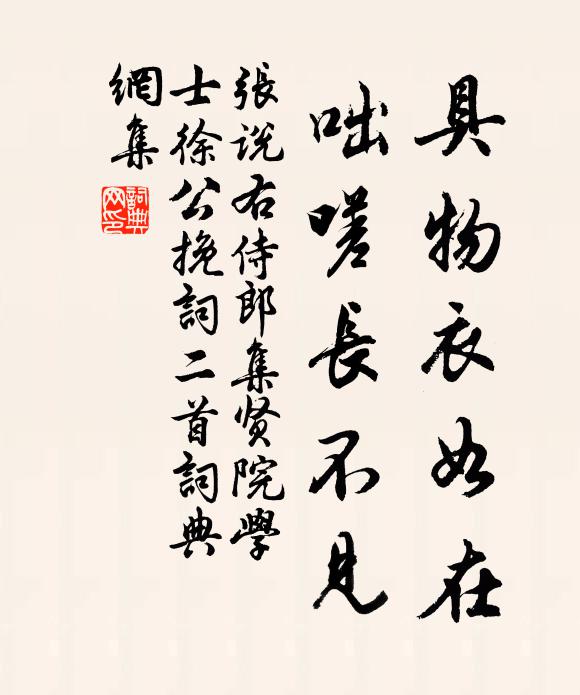 具物衣如在
咄嗟長不見
張説右侍郎集賢院學
士徐公挽詞二首詞典
網集
詞典網印